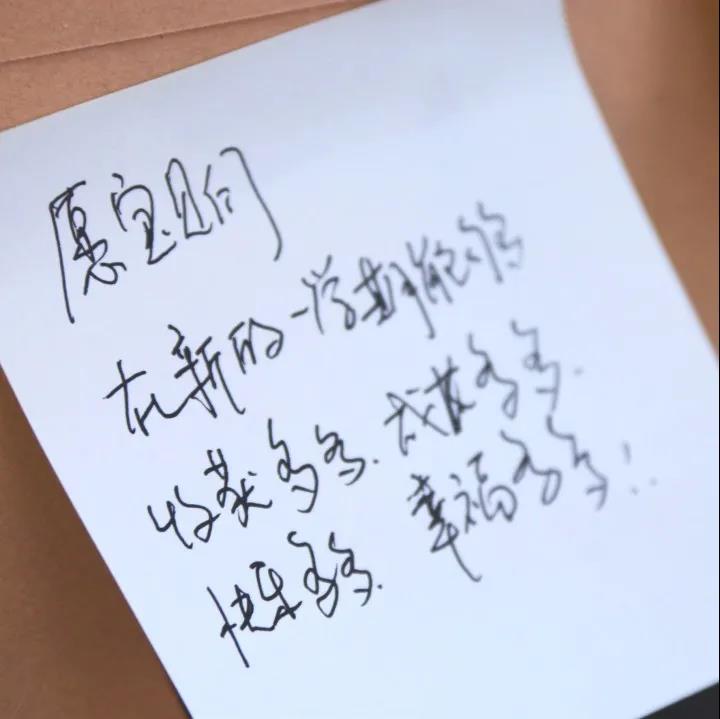 愿宝贝们
在新的一学期能够
收获多多、成长多多、
快乐多多、幸福多多!